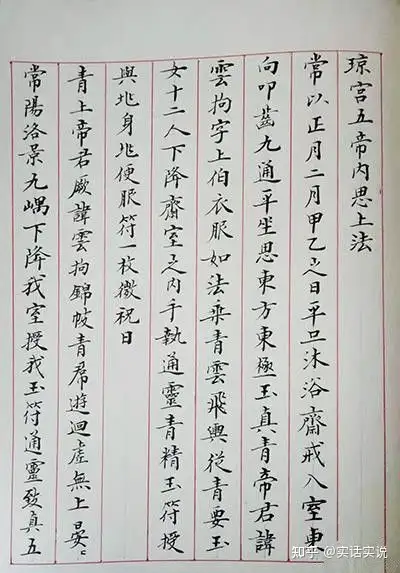 琼宫五帝内思上法
常以正月二月甲乙之日平旦沐浴齋戒入室東
向叩齒九通平坐思東方東極玉真青帝君諱
雲拘字上伯衣服如法乘青雲飛輿從青要玉
女十二人下降齋室之内手執通靈青精玉符授
與兆身兆便服符一枚微祝曰
青上帝君厥諱雲拘錦帔青帬遊迴虛無上晏
常陽洛景九嵎下降我室授我玉符通靈致真五
知乎 @实话实说